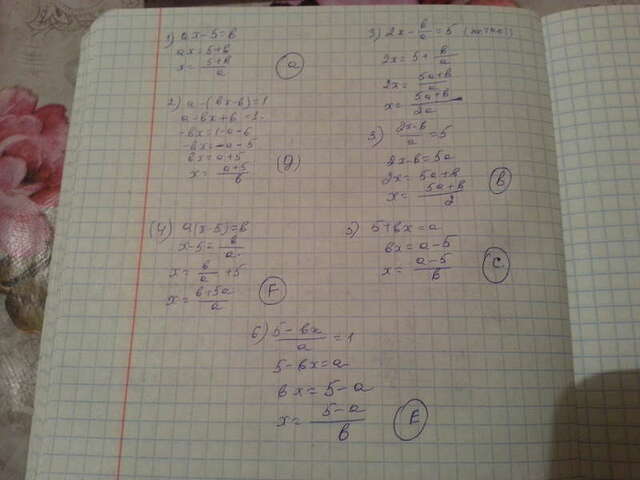 1) ax-5=в
ax=5+в
x=\frac{5+в}{a}
(a)
2) a-(вx-6)=1
a-вx+6=1
-вx=1-a-6
-вx=-a-5
вx=a+5
x=\frac{a+5}{в}
(д)
(4) a(x-5)=в
x-5=\frac{в}{a}
x=\frac{в}{a}+5
x=\frac{в+5a}{a}
(F)
3) 2x-\frac{в}{a}=5
2x=5+\frac{в}{a}
2x=\frac{5a+в}{a}
x=\frac{5a+в}{2a}
3) \frac{2x-в}{a}=5
2x-в=5a
2x=5a+в
x=\frac{5a+в}{2}
(в)
5) 5+вx=a
вx=a-5
x=\frac{a-5}{в}
(C)
6) \frac{5-вx}{a}=1
5-вx=a
вx=5-a
x=\frac{5-a}{в}
(E)